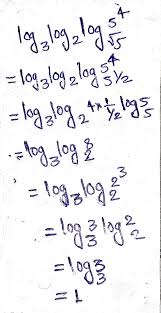 log₃ log₂ log_√5 5⁴
= log₃ log₂ log_5^1/2 5⁴
= log₃ log₂ 4×1/½ log₅ 5
= log₃ log₂ 8
= log₃ log₂ 2³
= log₃ 3 log₂ 2
= log₃ 3
= 1